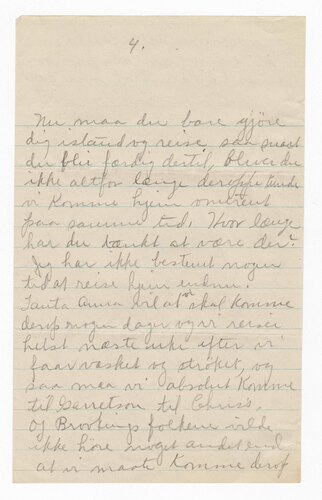 4.
Nu maa du bare gjöre
dig istand og reise saa snart
du blir færdig dertil, bliver du
ikke altfor længe deroppe kunde
vi komme hjem omtrent
paa samme tid. Hvor længe
har du tænkt at være der?
Jeg har ikke bestemt nogen
tid at reise hjem endnu.
Tanta Anna vil at vi skal komme
derop nogen dager og vi reiser
helst næste uke efter vi
faar vasket og strøket, og
saa maa vi absolut komme
til Garretson til Chriss,
og Brookings folkene vilde
ikke høre noget andet end
at vi maate komme derop